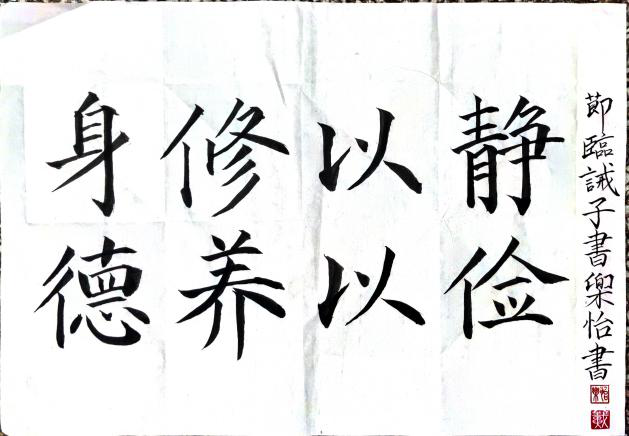 静以修身
俭以养德
節臨誡子書樂怡書